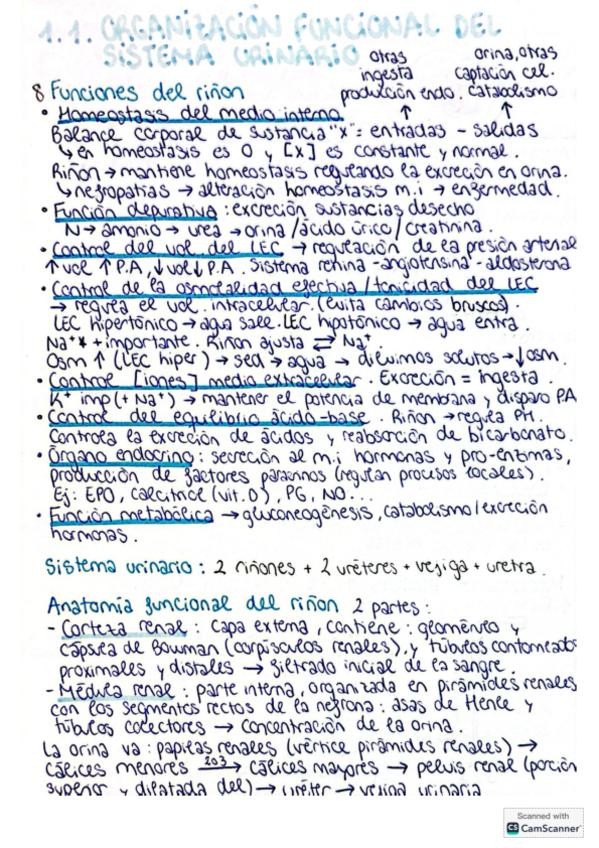 1.1. ORGANIZACIÓN FUNCIONAL DEL
SISTEMA URINARIO
otras
ingesta
producción endo.
orina, otras
captación cel.
catabolismo
8 Funciones del riñon
• Homeostasis del medio interno.
Balance corporal de sustancia "x" = entradas - salidas
↳ en homeostasis es 0 y [x] es constante y normal.
Riñon → mantiene homeostasis regulando la excreción en orina.
↳ nefropatias → alteración homeostasis m.i → enfermedad.
• Función depurativa : excreción sustancias desecho
N → amonio → urea → orina / ácido úrico / creatinina.
• Control del vol. del LEC → regulación de la presión arterial
↑ vol ↑ P.A, ↓ vol ↓ P.A. Sistema renina - angiotensina - aldosterona
• Control de la osmolalidad efectiva / tonicidad del LEC
→ regula el vol. intracelular. (evita cambios bruscos).
LEC hipertónico → agua sale. LEC hipotónico → agua entra.
Na⁺* + importante. Riñon ajusta ⇄ Na⁺.
Osm ↑ (LEC hiper) → sed → agua → diluimos solutos → ↓ osm.
• Control [iones] medio extracelular. Excreción = ingesta.
K⁺ imp (+ Na⁺) → mantener el potencia de membrana y disparo P.A
• Control del equilibrio ácido-base. Riñon → regula PH.
Controla la excreción de ácidos y reabsorción de bicarbonato.
• Órgano endocrino : secreción al m.i hormonas y pro-enzimas,
producción de factores paracrinos (regulan procesos locales).
Ej: EPO, calcitriol (vit. D), PG, NO...
• Función metabólica → gluconeogénesis, catabolismo / excreción
hormonas.
Sistema urinario : 2 riñones + 2 uréteres + vejiga + uretra.
Anatomía funcional del riñon 2 partes :
- Corteza renal : capa externa, contiene : glomérulo y
cápsula de Bowman (corpúsculos renales), y túbulos contorneados
proximales y distales → filtrado inicial de la sangre.
- Médula renal : parte interna, organizada en pirámides renales
con los segmentos rectos de la nefrona : asas de Henle y
túbulos colectores → concentración de la orina.
La orina va : papilas renales (vértice pirámides renales) →
cálices menores 2o3→ cálices mayores → pelvis renal (porción
superior y dilatada del) → uréter → vejiga urinaria
Scanned with
CS CamScanner